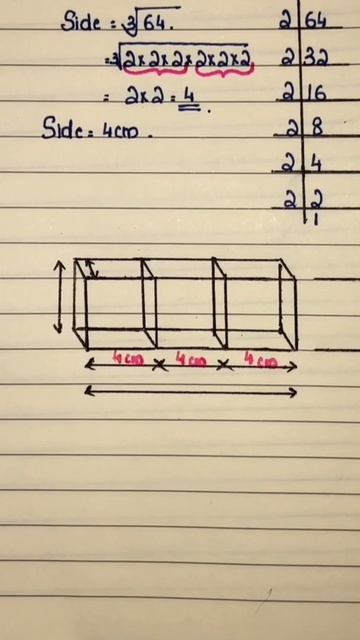 Side = ∛64.
= ∛2×2×2×2×2×2
= 2×2 = 4.
Side = 4cm.
2 | 64
2 | 32
2 | 16
2 | 8
2 | 4
2 | 2
1
4cm 4cm 4cm